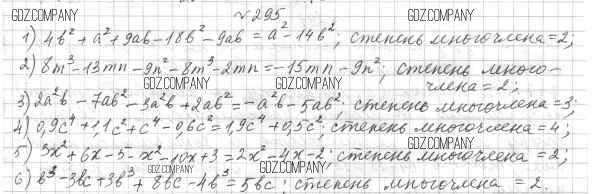 №295
GDZ.COMPANY GDZ.COMPANY
1) 4b² + a² + 9ab – 18b² – 9ab = a² – 14b²; степень многочлена = 2;
2) 8m³ – 13mn – 9n² – 8m³ – 2mn = –15mn – 9n²; степень много-
GDZ.COMPANY GDZ.COMPANY члена = 2;
3) 2a²b – 7ab² – 3a²b + 2ab² = –a²b – 5ab²; степень многочлена = 3;
GDZ.COMPANY GDZ.COMPANY
4) 0,9c⁴ + 1,1c² + c⁴ – 0,6c² = 1,9c⁴ + 0,5c²; степень многочлена = 4;
GDZ.COMPANY
5) 3x² + 6x – 5 – x² – 10x + 3 = 2x² – 4x – 2; степень многочлена = 2;
GDZ.COMPANY GDZ.COMPANY
6) b³ – 3bc + 3b³ + 8bc – 4b³ = 5bc; степень многочлена = 2.